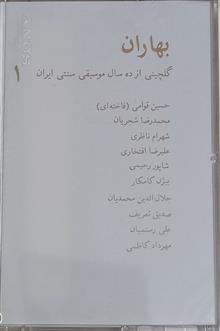 SONY
بهاران
گلچینی از ده سال موسیقی سنتی ایران
۱
حسین قوامی (فاخته‌ای)
محمدرضا شجریان
شهرام ناظری
علیرضا افتخاری
شاپور رحیمی
بیژن کامکار
جلال الدین محمدیان
صدیق تعریف
علی رستمیان
مهرداد کاظمی